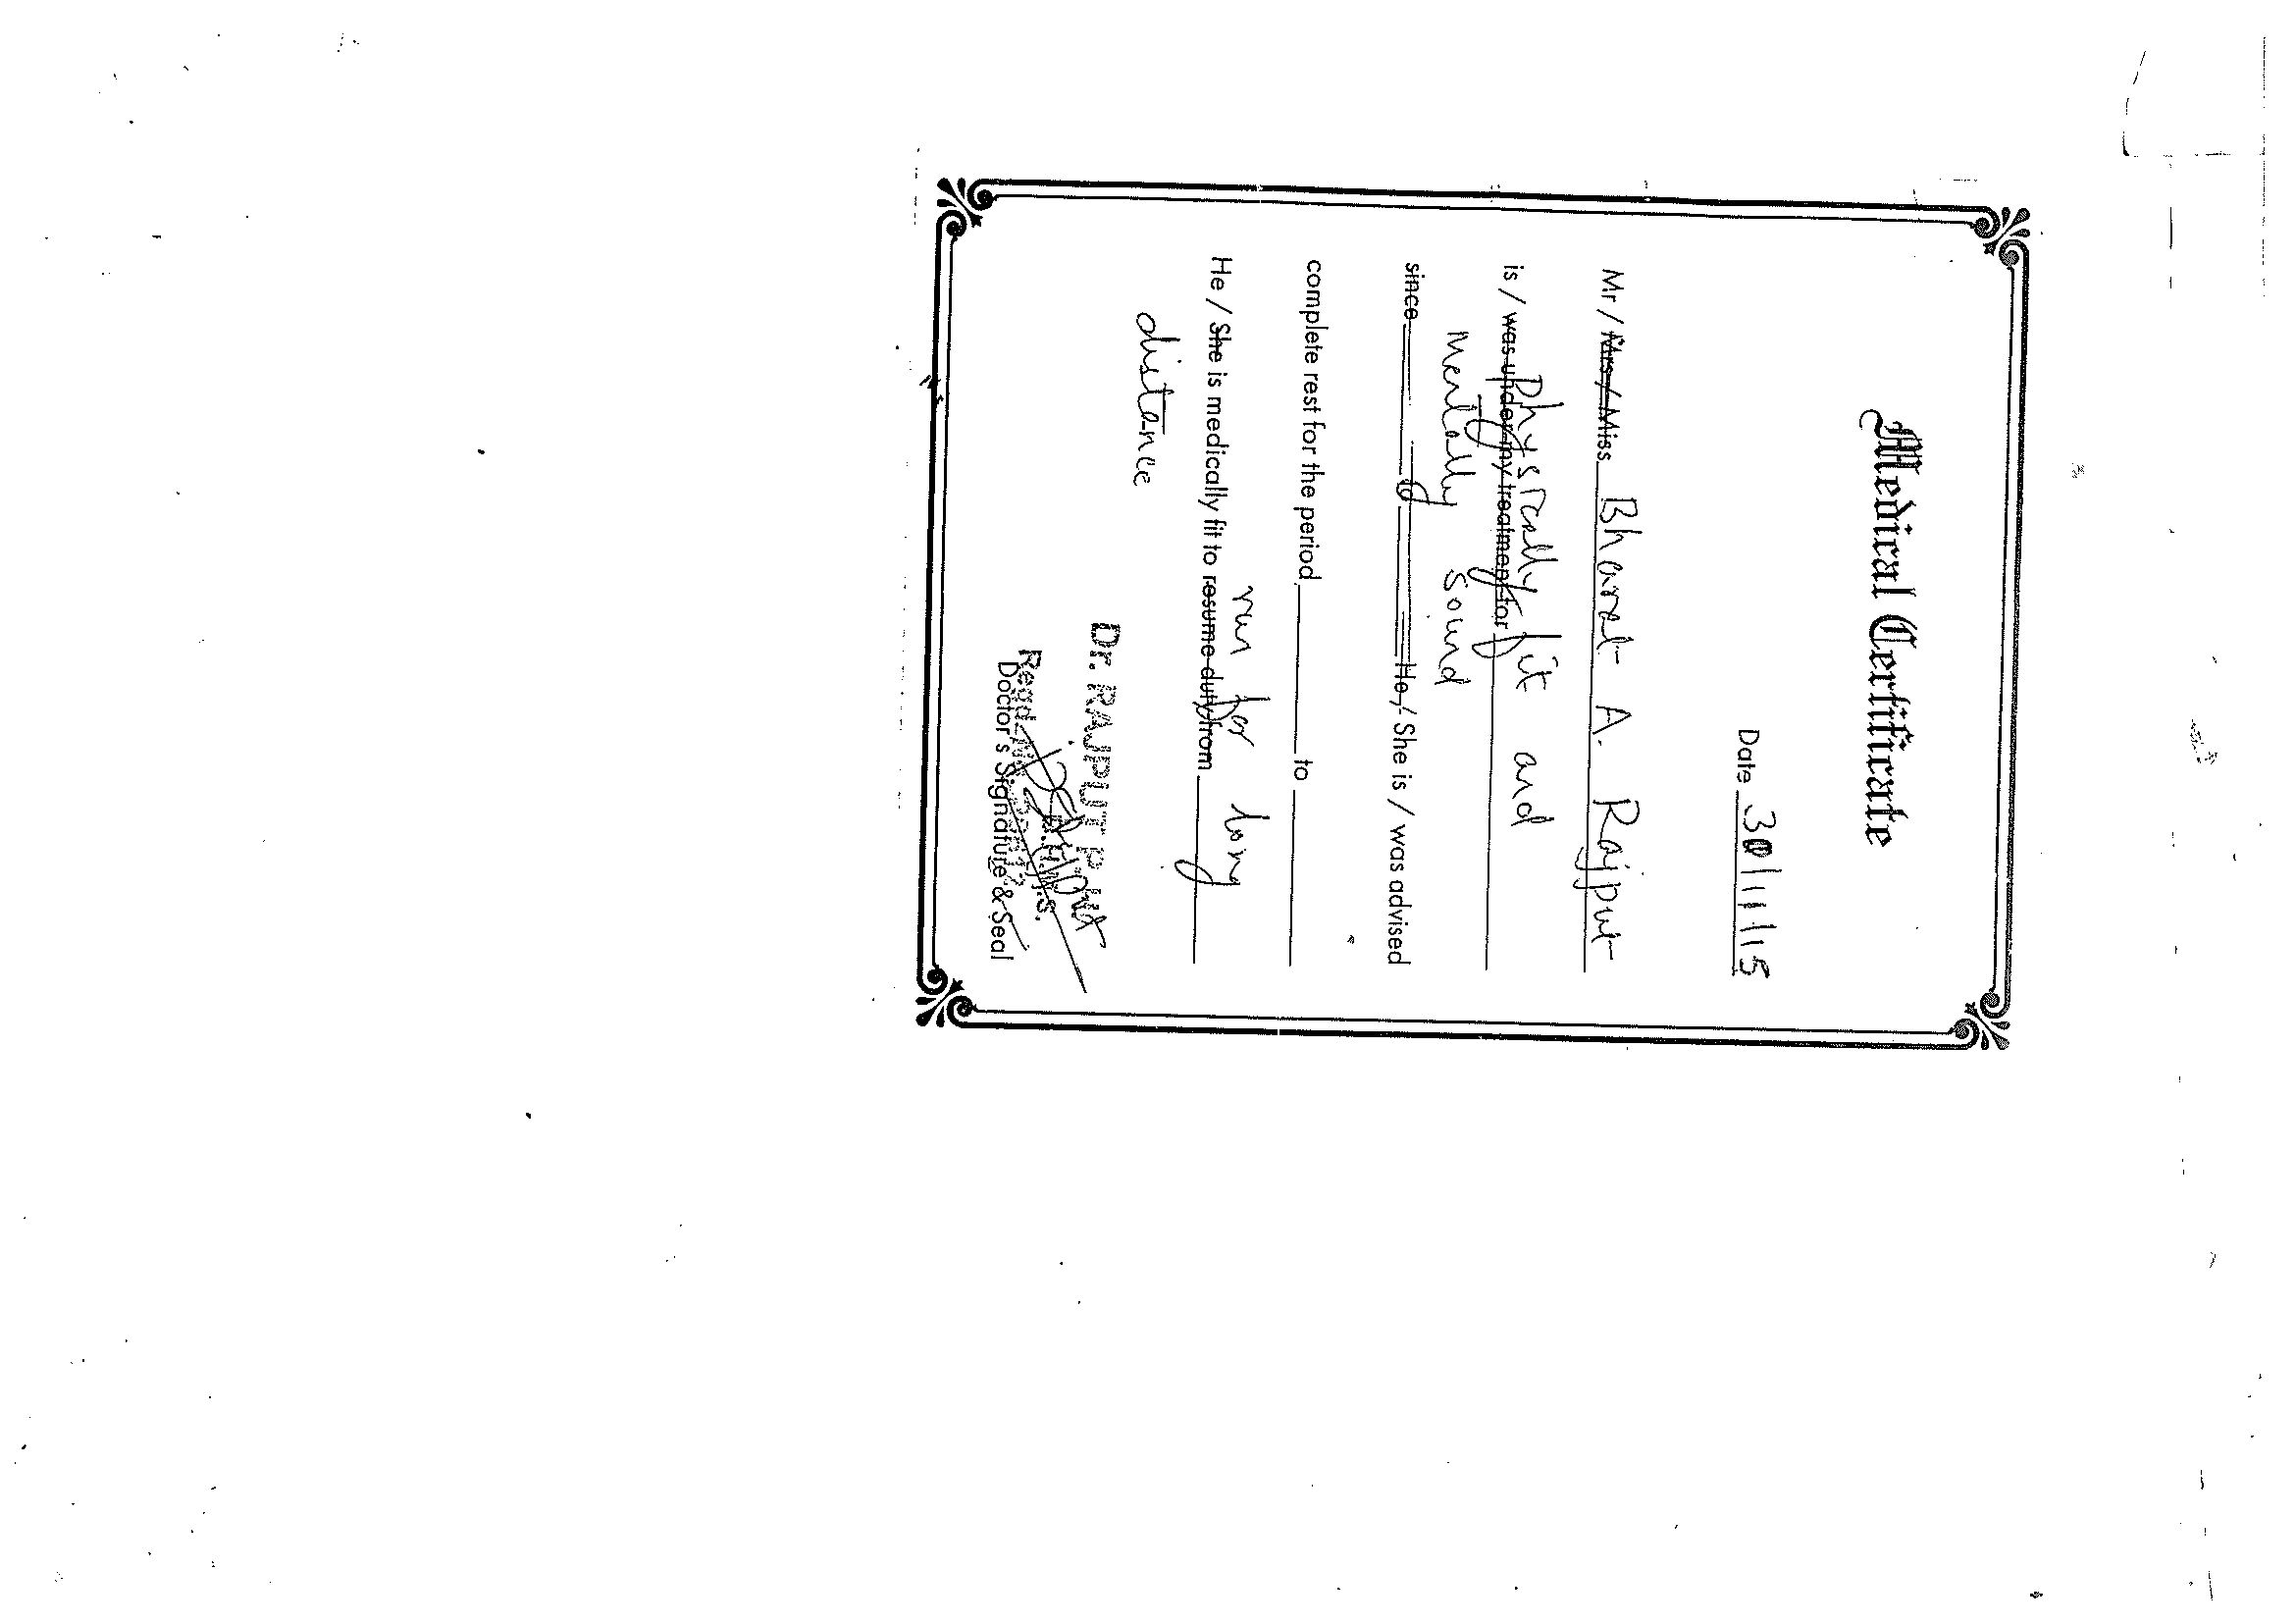 Medical Certificate
Date 30/11/15
Mr / Mrs / Miss Bharat A. Rajput
is / was under my treatment for Physically fit and
mentally sound
since to He / She is / was advised
complete rest for the period to
run for long
He / She is medically fit to resume duty from
distance
Dr. RAJPUT P.
Regd.
Doctor's Signature & Seal